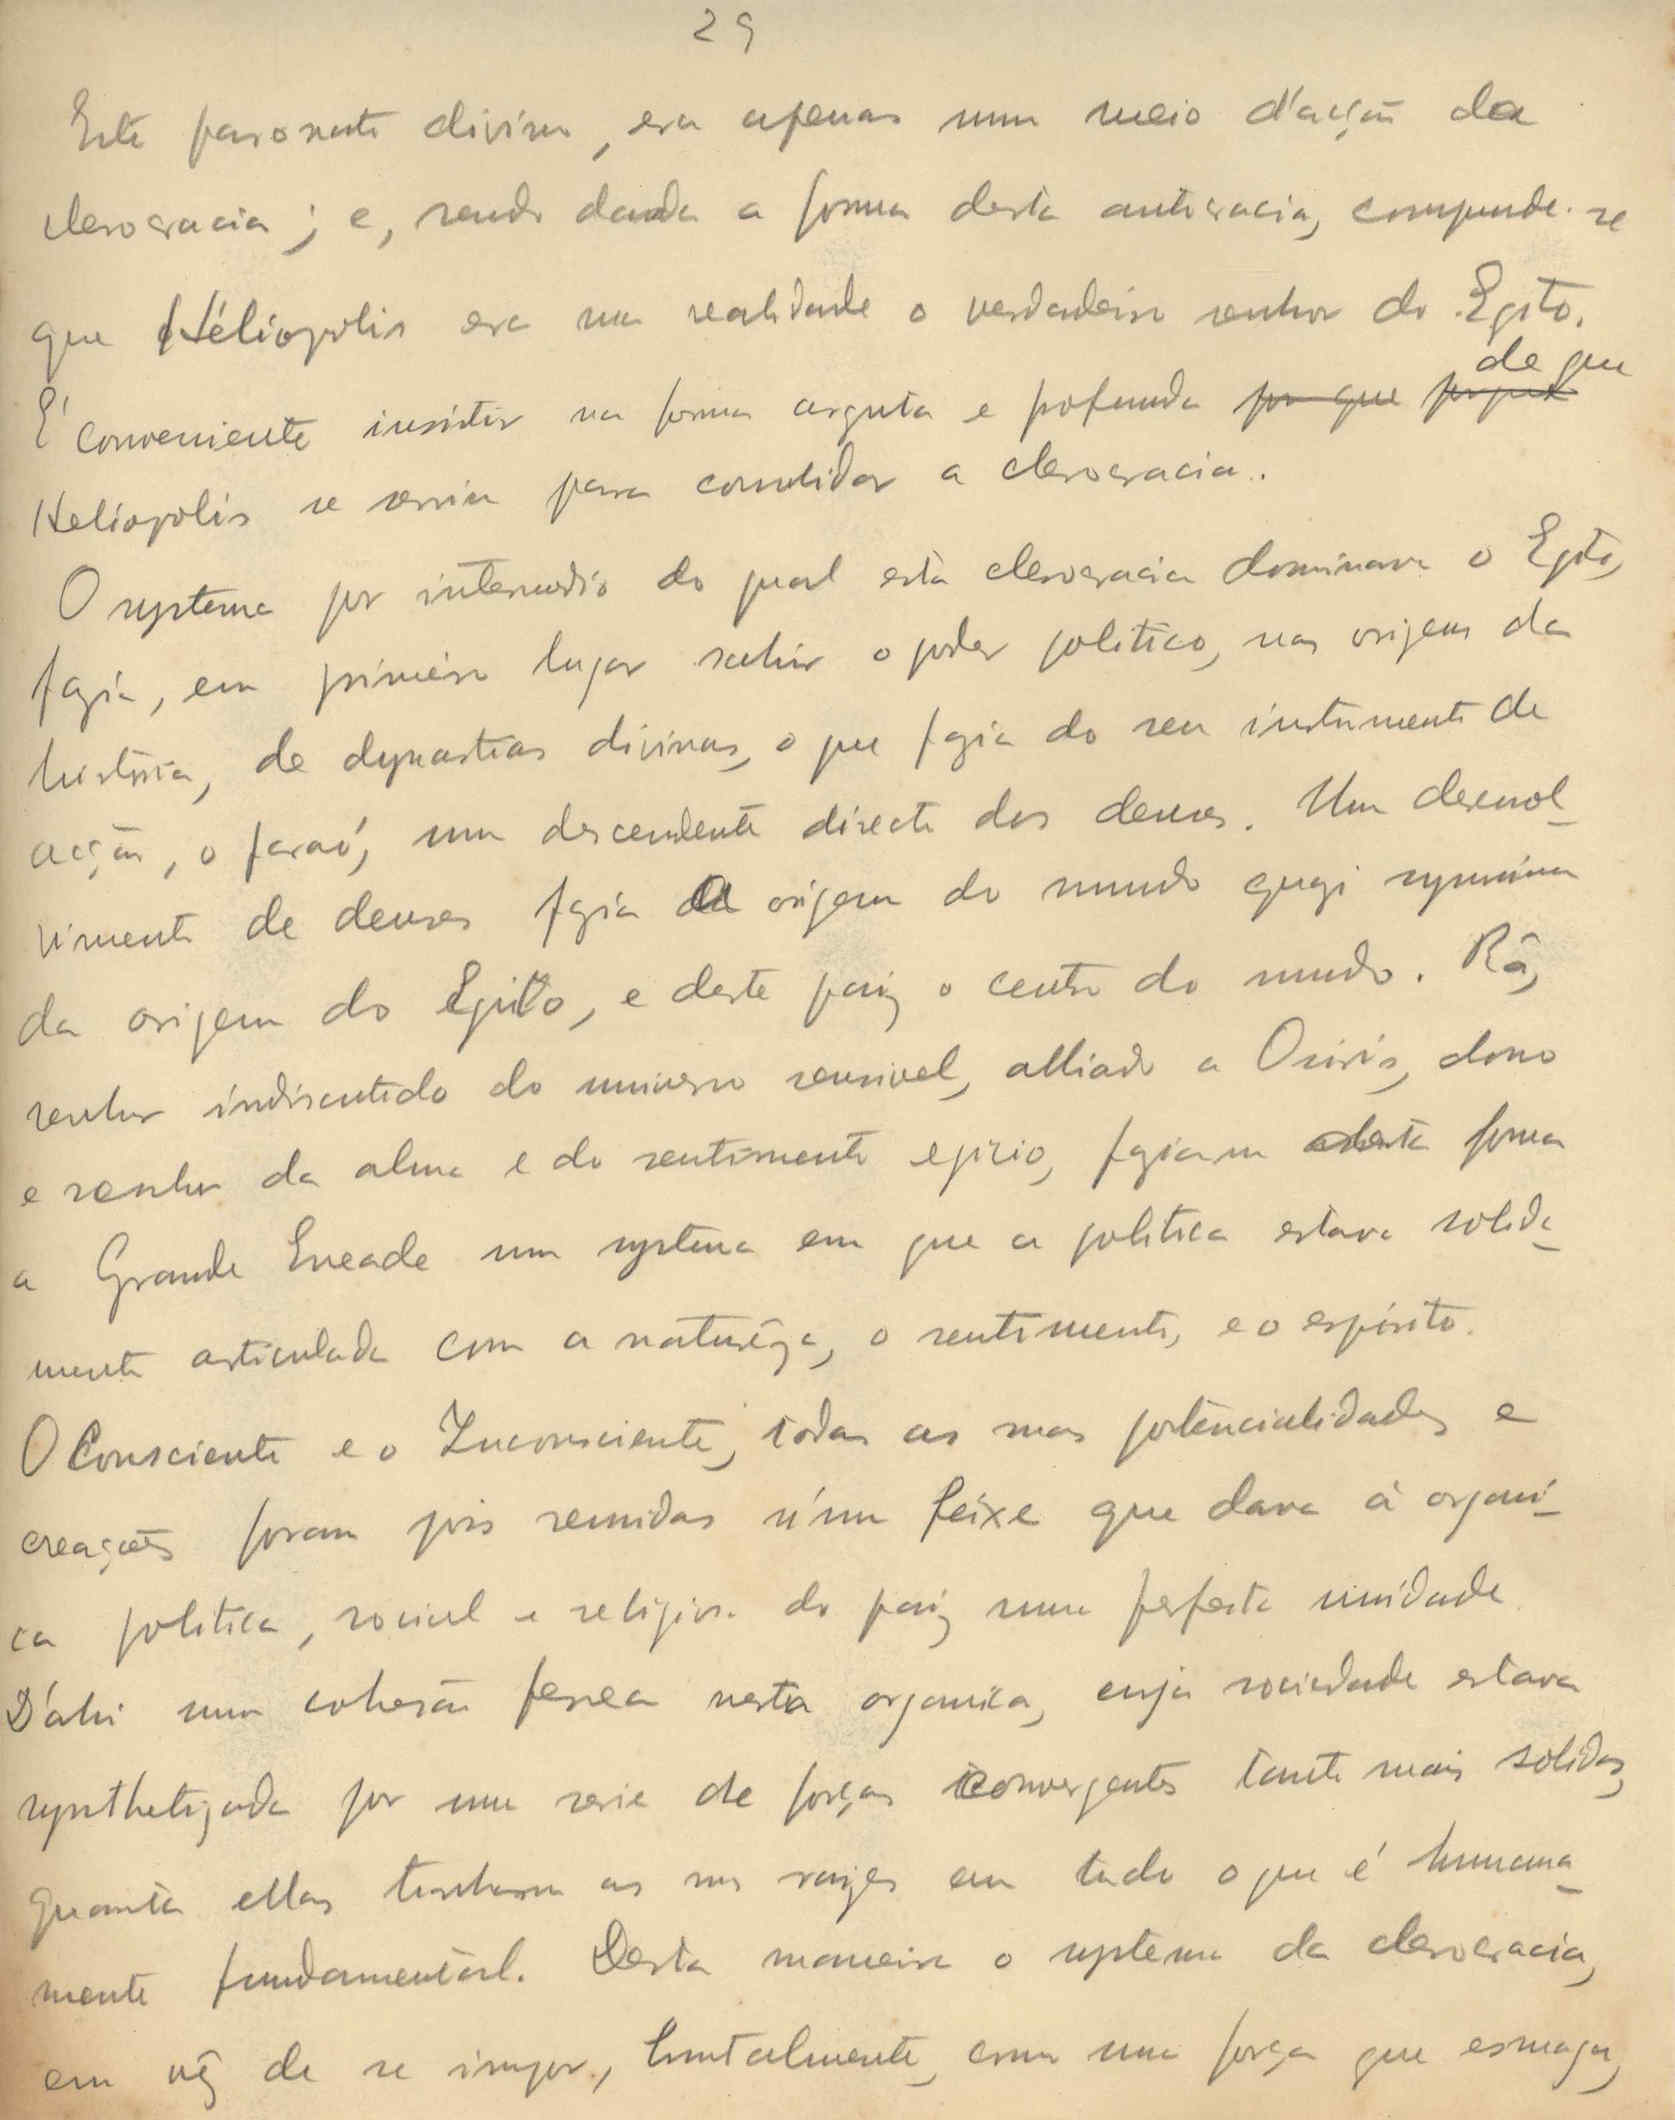 29
Este personate divino, era apenas um meio d'acção da
clerocracia; e, sendo dada a forma desta autocracia, comprende-se
que Héliopolis era na realidade o verdadeiro senhor do Egito.
É conveniente insistir na forma arguta e profunda por que porque de que
Heliopolis se servia para consolidar a clerocracia.
O systema por intermedio do qual esta clerocracia dominava o Egito,
fazia, em primeiro lugar sahir o poder politico, nas origens da
historia, de dynastias divinas, o que fazia do seu instrumento de
acção, o faraó, um descendente directo dos deuses. Um desenvol-
vimento de deuses fazia da origem do mundo quazi synonima
da origem do Egito, e deste paiz o centro do mundo. Râ,
senhor indiscutido do universo sensivel, alliado a Osiris, dono
e senhor da alma e do sentimento egizio, faziam desta forma
a Grande Eneade um systema em que a politica estava solida-
mente articulada com a naturêza, o sentimento, e o espirito.
O Consciente e o Inconsciente, todas as suas potencialidades e
creações foram pois reunidas n'um feixe que dava á organi-
ca politica, social e religiosa do paiz uma perfeita unidade
D'ahi uma cohesão ferrea nesta organica, cuja sociedade estava
synthetizada por uma serie de forças convergentes tanto mais solidas,
quanto ellas tinham as suas raizes em tudo o que é humana-
mente fundamental. Desta maneira o systema da clerocracia,
em vêz de se impor, brutalmente, como uma força que esmaga,